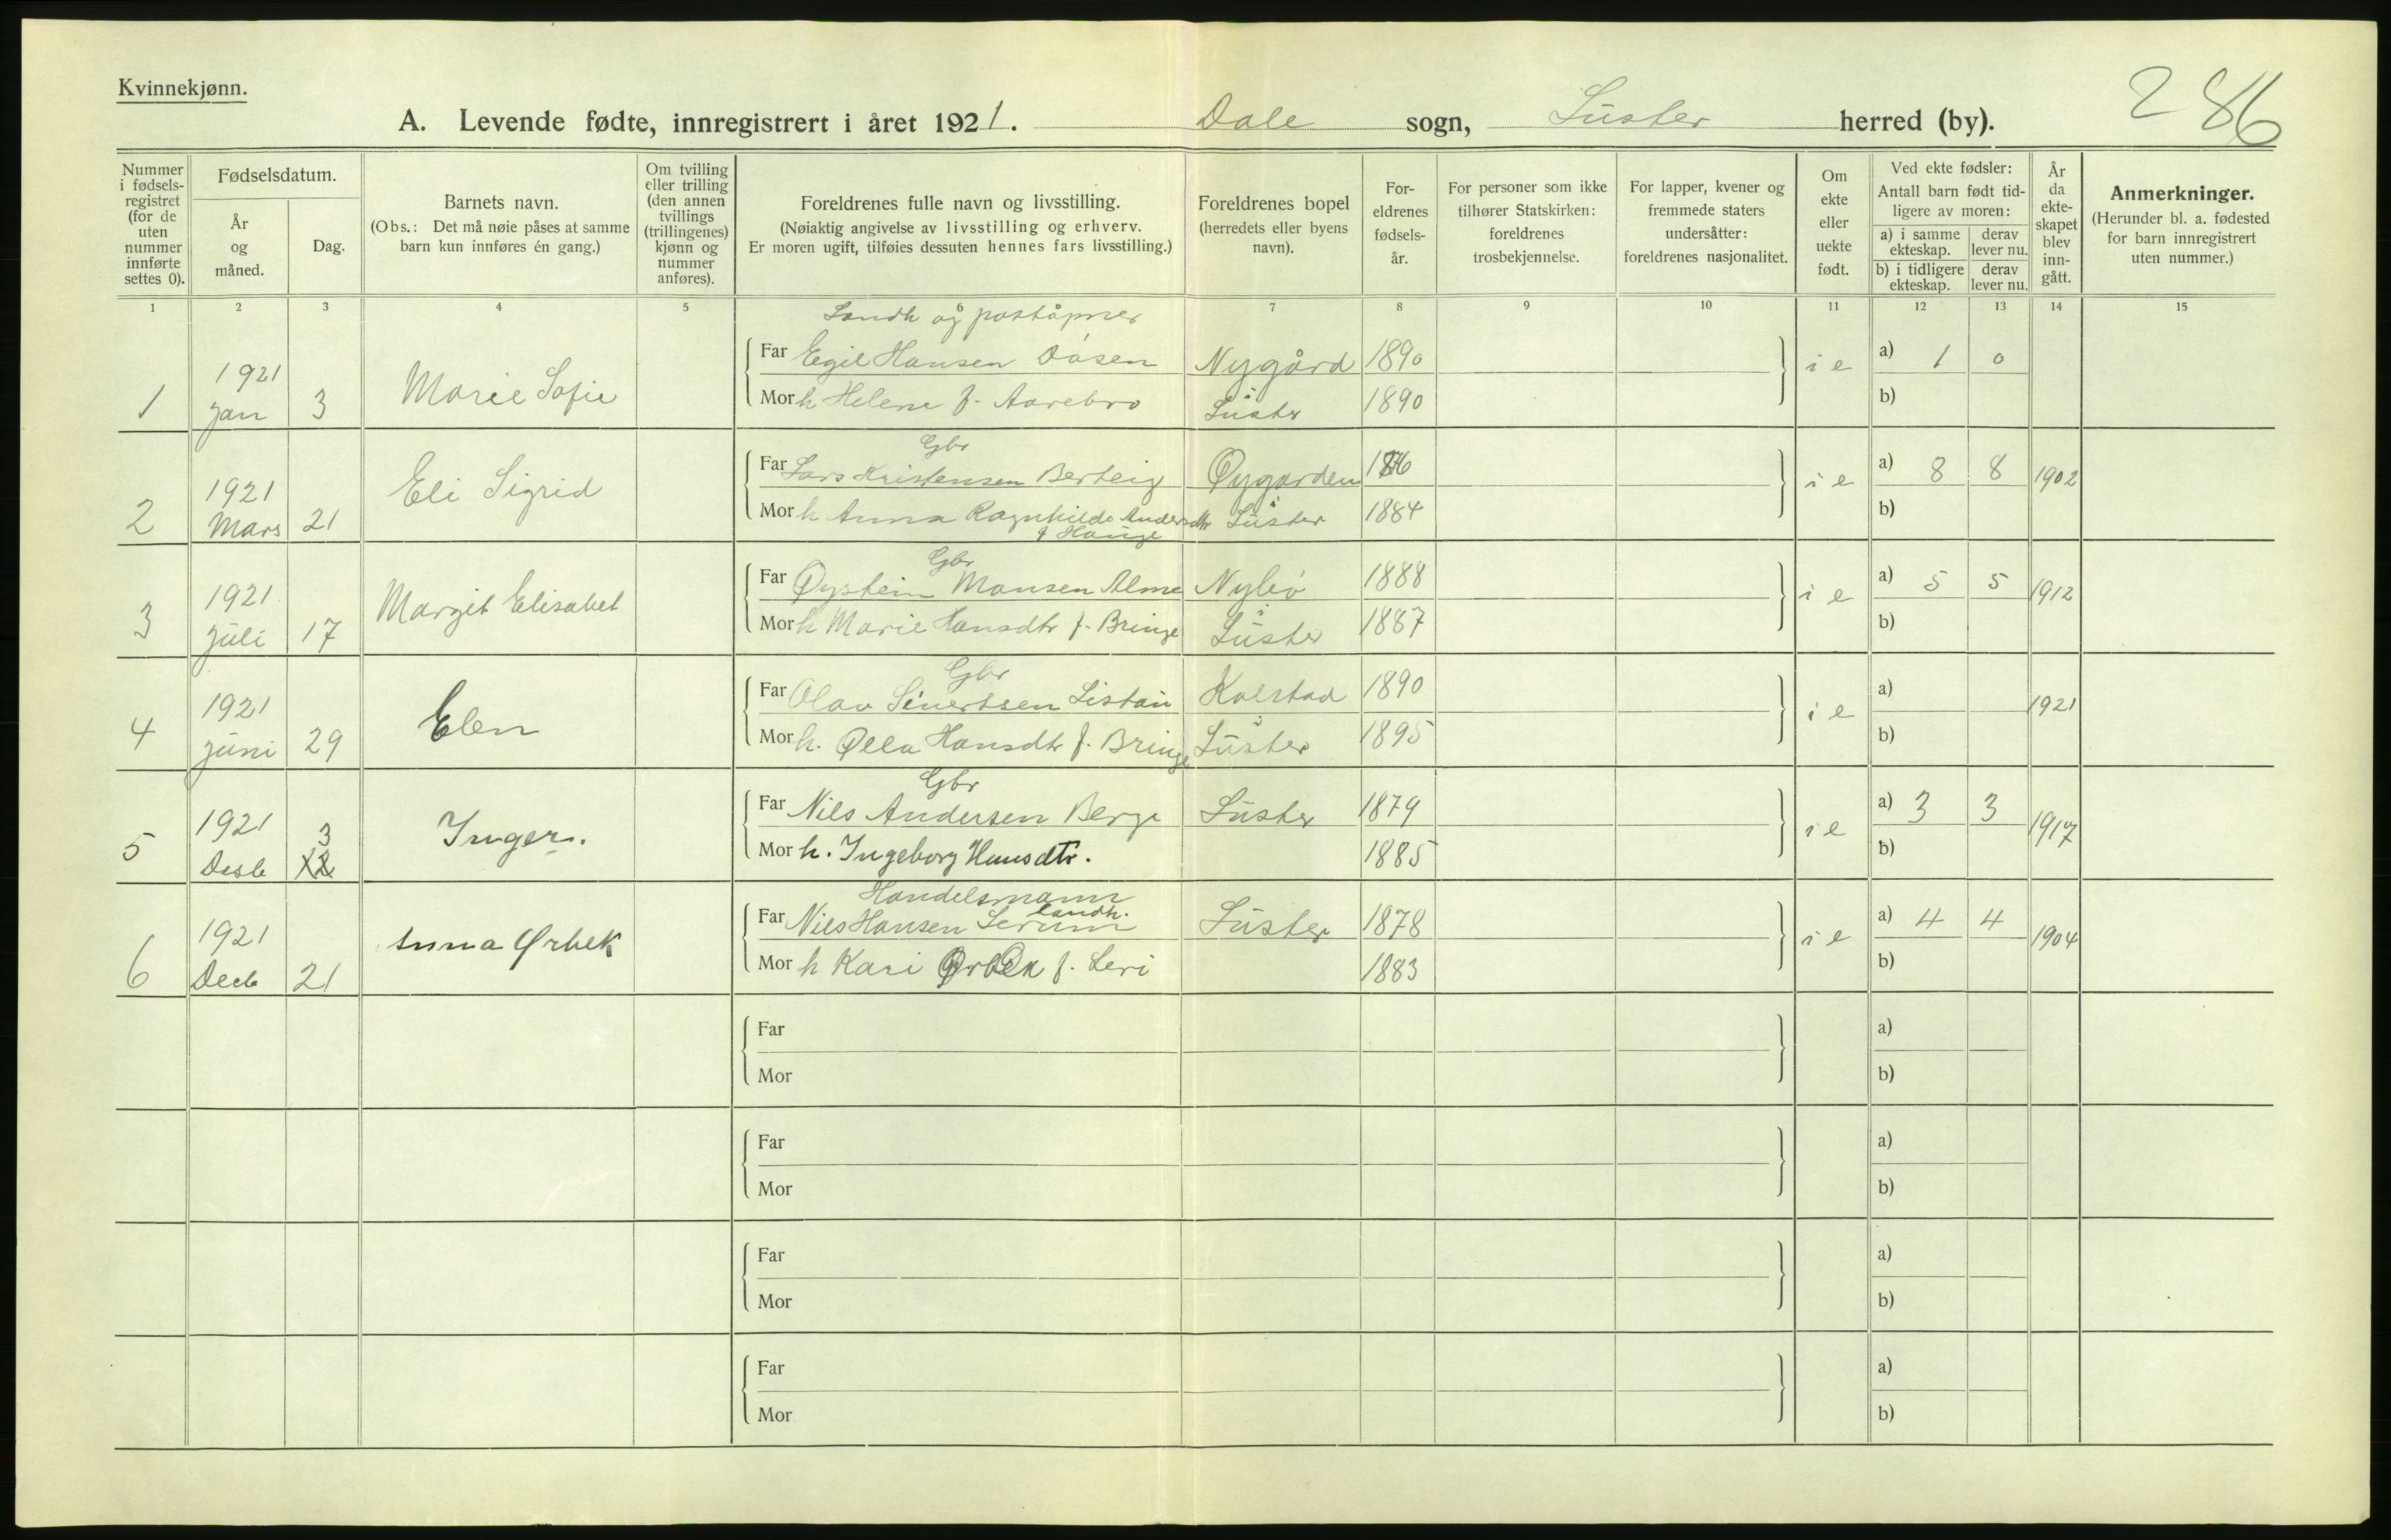 Kvinnekjønn.
286
A. Levende fødte, innregistrert i året 1921. Dale sogn, Luster herred (by).
Nummer i fødselsregistret (for de uten nummer innførte settes 0).
Fødselsdatum.
År og måned.
Dag.
Barnets navn.
(Obs.: Det må nøie påses at samme barn kun innføres én gang.)
Om tvilling eller trilling (den annen tvillings (trillingenes) kjønn og nummer anføres).
Foreldrenes fulle navn og livsstilling.
(Nøiaktig angivelse av livsstilling og erhverv.
Er moren ugift, tilføies dessuten hennes fars livsstilling.)
Foreldrenes bopel
(herredets eller byens navn).
Foreldrenes fødselsår.
For personer som ikke tilhører Statskirken: foreldrenes trosbekjennelse.
For lapper, kvener og fremmede staters undersåtter: foreldrenes nasjonalitet.
Om ekte eller uekte født.
Ved ekte fødsler:
Antall barn født tidligere av moren:
a) i samme ekteskap. derav lever nu.
b) i tidligere ekteskap. derav lever nu.
År da ekteskapet blev inngått.
Anmerkninger.
(Herunder bl. a. fødested for barn innregistrert uten nummer.)
1 2 3 4 5 6 7 8 9 10 11 12 13 14 15
Landh og poståpner
1 1921 Jan 3 Marie Sofie
Far Egil Hansen Døsen Nygård 1890 i e a) 1 0
Mor h Helene f. Aarebro Luster 1890 b)
Gbr
2 1921 Mars 21 Eli Sigrid
Far Lars Kristensen Berteig Øygarden i e a) 8 8 1902
Mor h Anna Ragnhilde Andersdtr f Hauge Luster 1884 b)
Gbr
3 1921 Juli 17 Margit Elisabet
Far Øystein Monsen Alme Nylø 1888 i e a) 5 5 1912
Mor h Marie Hansdtr f. Bringe Luster 1887 b)
Gbr
4 1921 Juni 29 Elen
Far Olav Sivertsen Kolstad 1890 i e a) 1921
Mor h. Øllu Hansdtr f. Bringe Luster 1895 b)
Gbr
5 1921 Desb 3 Inger.
Far Nils Andersen Berge Luster 1879 i e a) 3 3 1917
Mor h. Ingeborg Hansdtr. 1885 b)
Handelsmann
landh.
6 1921 Decb 21 Anna Ørbek
Far Nils Hansen Lerum Luster 1878 i e a) 4 4 1904
Mor h Kari Ørbek f. Leri 1883 b)
Far a)
Mor b)
Far a)
Mor b)
Far a)
Mor b)
Far a)
Mor b)